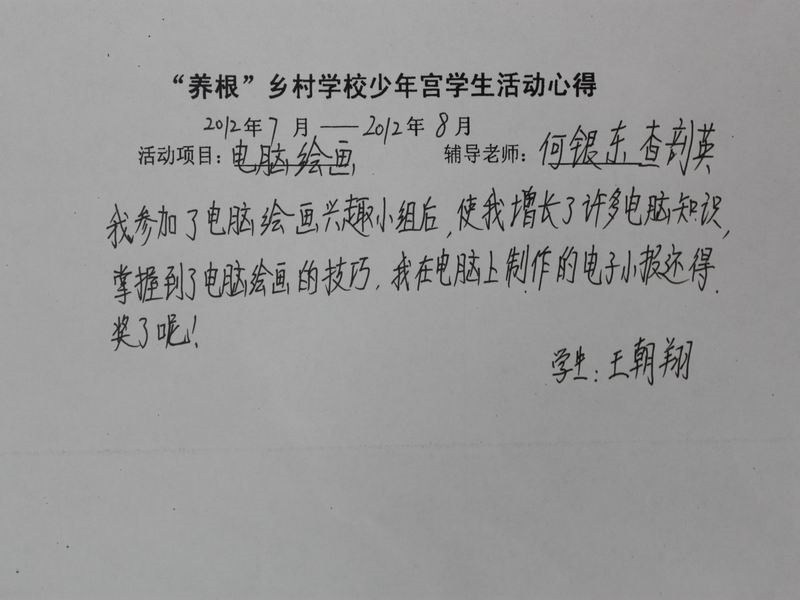 “养根”乡村学校少年宫学生活动心得
2012年7月——2012年8月
活动项目：电脑绘画 辅导老师：何银东 查剖英
我参加了电脑绘画兴趣小组后，使我增长了许多电脑知识，
掌握到了电脑绘画的技巧，我在电脑上制作的电子小报还得
奖了呢！
学生：王朝翔